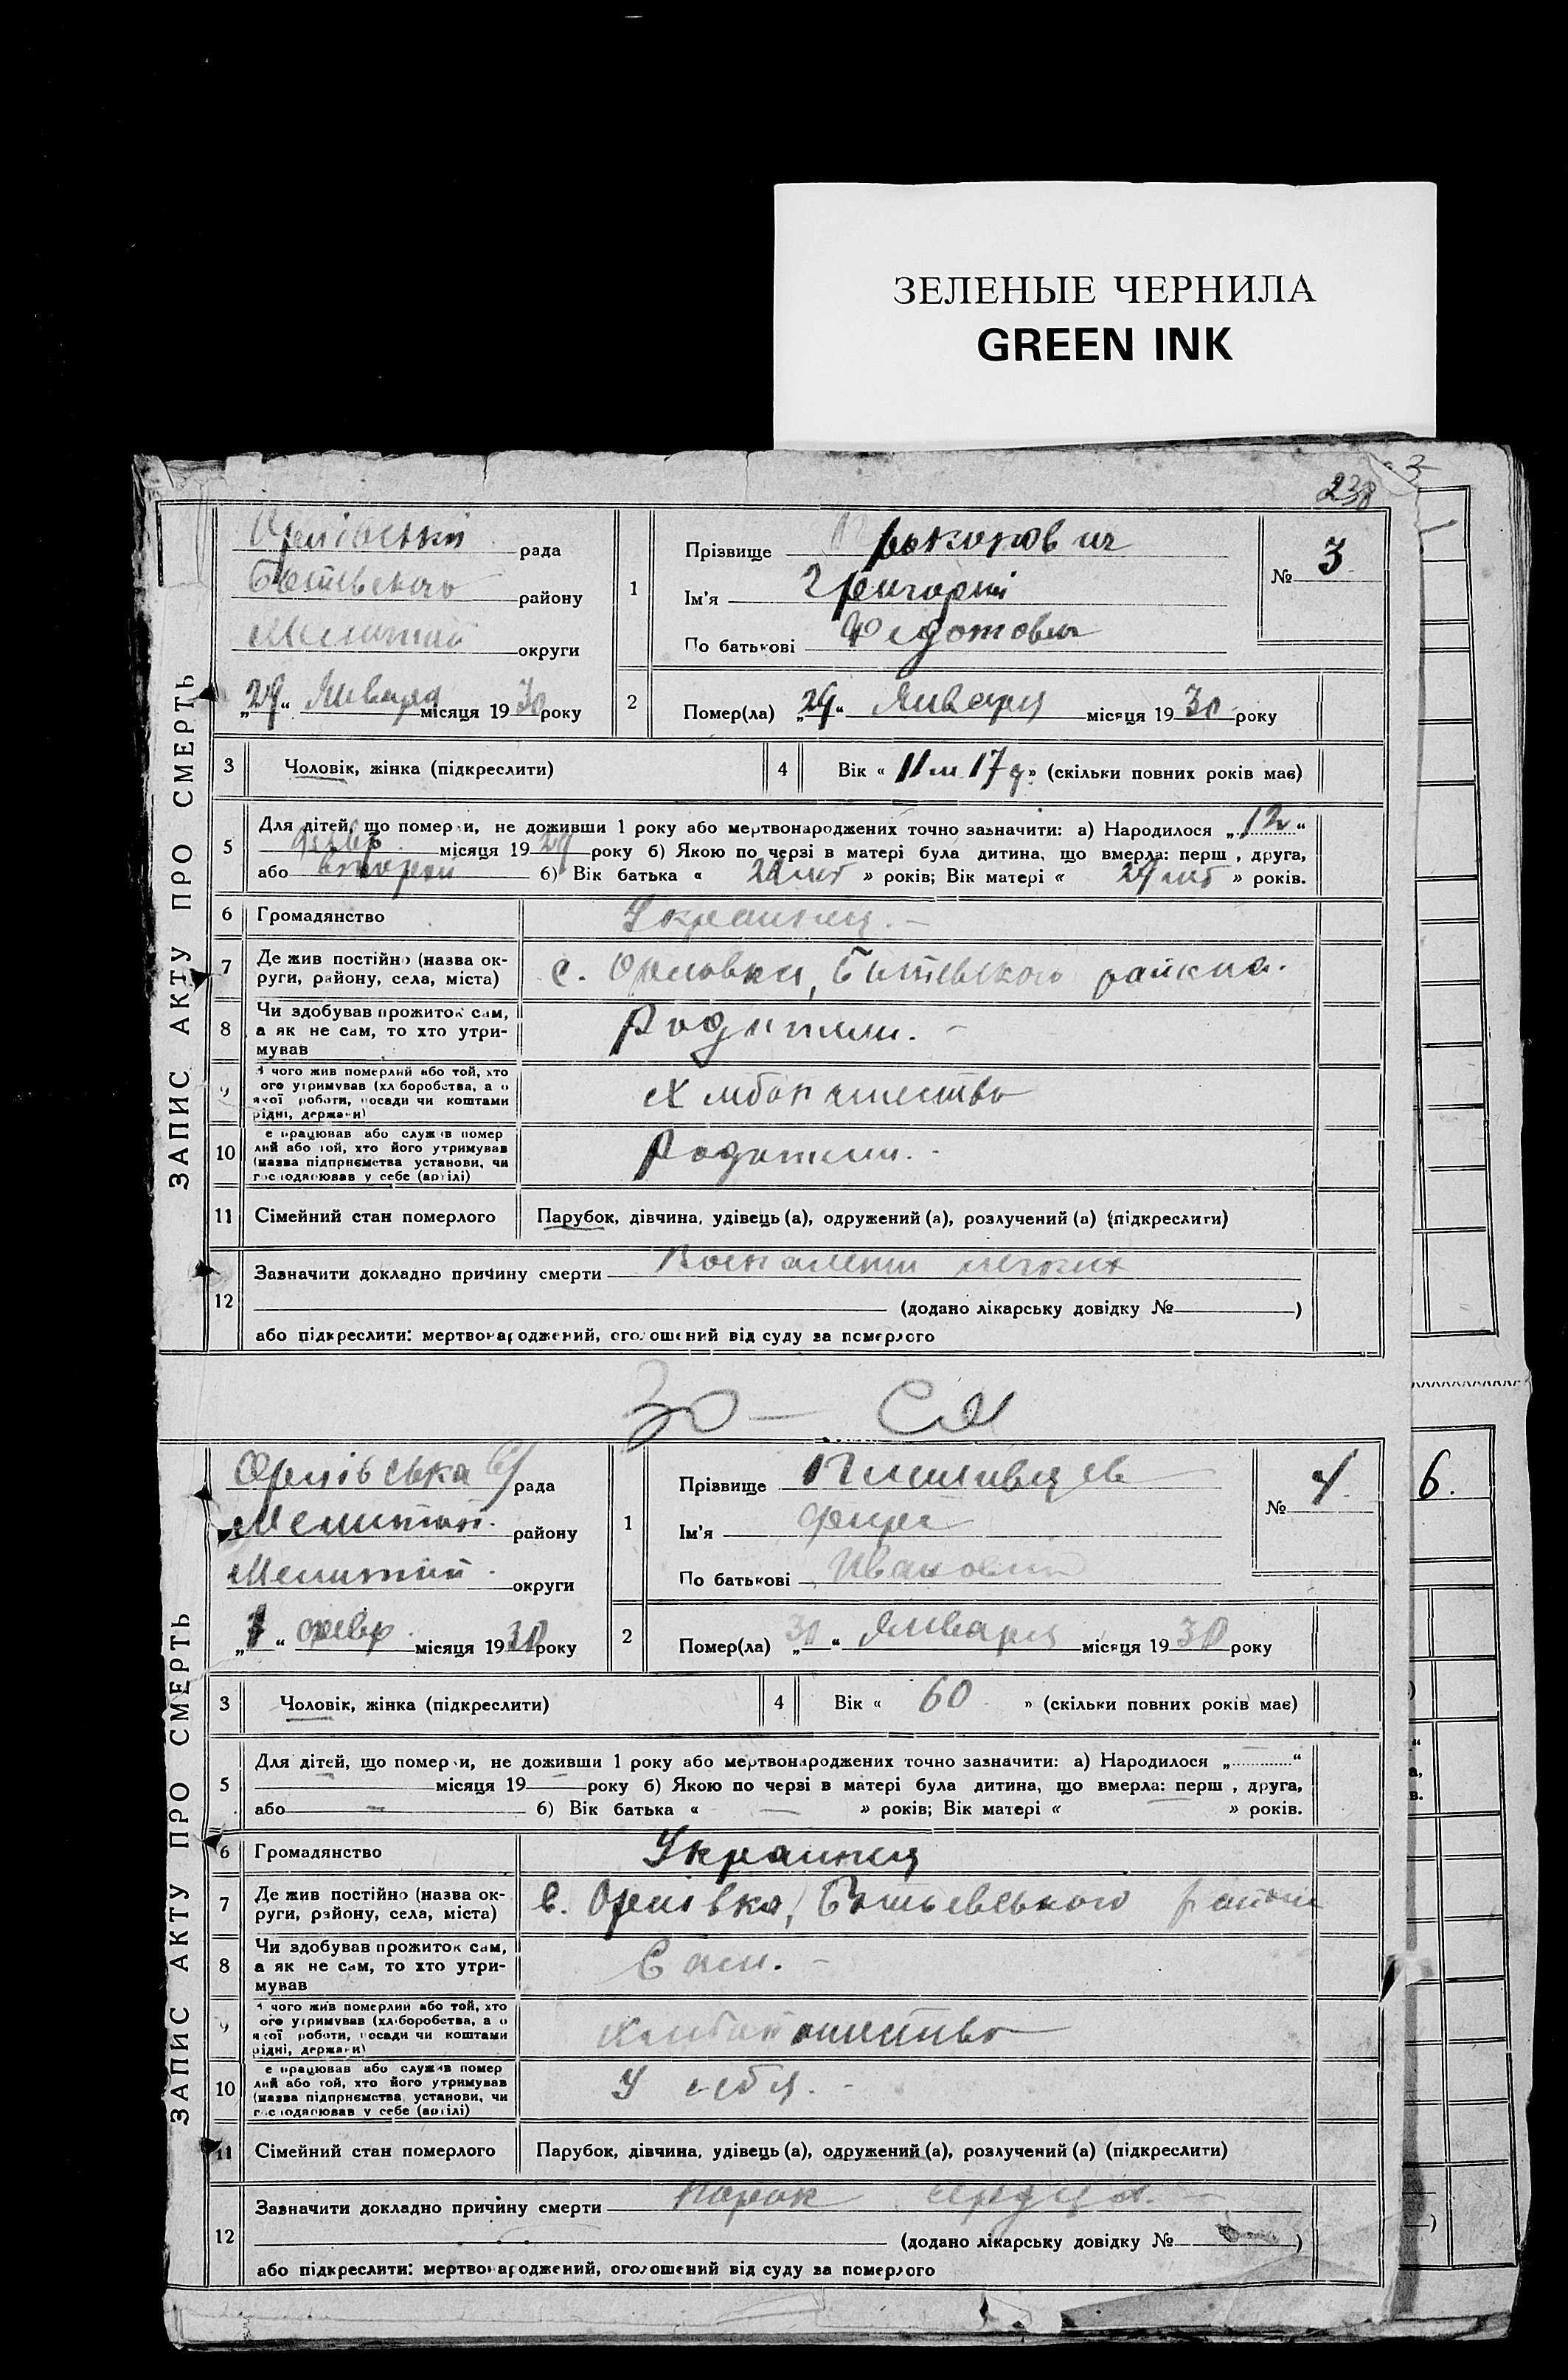 ЗЕЛЕНЫЕ ЧЕРНИЛА
GREEN INK
3
238
ЗАПИС АКТУ ПРО СМЕРТЬ
рада
району
округи
„29“ Января місяця 1930 року
1
Прізвище
Ім'я Григорий
По батькові Федотович
№ 3
2
Помер(ла) „29“ Января місяця 1930 року
3
Чоловік, жінка (підкреслити)
4
Вік « 11 м 17 д » (скільки повних років має)
5
Для дітей, що померли, не доживши 1 року або мертвонароджених точно зазначити: а) Народилося „12“
місяця 1929 року б) Якою по черзі в матері була дитина, що вмерла: перш , друга,
або второй б) Вік батька « » років; Вік матері « » років.
6
Громадянство Украинец. –
7
Де жив постійно (назва ок-
руги, району, села, міста)
с. Орловка, района.
8
Чи здобував прожиток сам,
а як не сам, то хто утри-
мував
Родители. –
9
чого жив померлий або той, хто
ого утримував (хліборобства, а о
якої роботи, посади чи коштами
рідні, держави)
10
е працював або служив помер
лий або той, хто його утримував
(назва підприємства установи, чи
господарював у себе (артілі)
Родители. -
11
Сімейний стан померлого
Парубок, дівчина, удівець (а), одружений (а), розлучений (а) (підкреслити)
12
Зазначити докладно причину смерти легких
(додано лікарську довідку № )
або підкреслити: мертвонароджений, оголошений від суду за померлого
30 –
ЗАПИС АКТУ ПРО СМЕРТЬ
рада
Мелитоп. району
округи
февр. місяця 1930 року
1
Прізвище
Ім'я
По батькові Иванович
№ 4
6.
2
Помер(ла) „30“ Января місяця 1930 року
3
Чоловік, жінка (підкреслити)
4
Вік « 60 » (скільки повних років має)
5
Для дітей, що померли, не доживши 1 року або мертвонароджених точно зазначити: а) Народилося „ “
місяця 19 року б) Якою по черзі в матері була дитина, що вмерла: перш , друга,
або б) Вік батька « – » років; Вік матері « – » років.
6
Громадянство Украинец
7
Де жив постійно (назва ок-
руги, району, села, міста)
с. Орлівка,
8
Чи здобував прожиток сам,
а як не сам, то хто утри-
мував
Сам. –
9
чого жив померлий або той, хто
ого утримував (хліборобства, а о
якої роботи, посади чи коштами
рідні, держави)
10
е працював або служив помер
лий або той, хто його утримував
(назва підприємства установи, чи
господарював у себе (артілі)
У себя. -
11
Сімейний стан померлого
Парубок, дівчина, удівець (а), одружений (а), розлучений (а) (підкреслити)
12
Зазначити докладно причину смерти Порок сердца. –
(додано лікарську довідку № )
або підкреслити: мертвонароджений, оголошений від суду за померлого